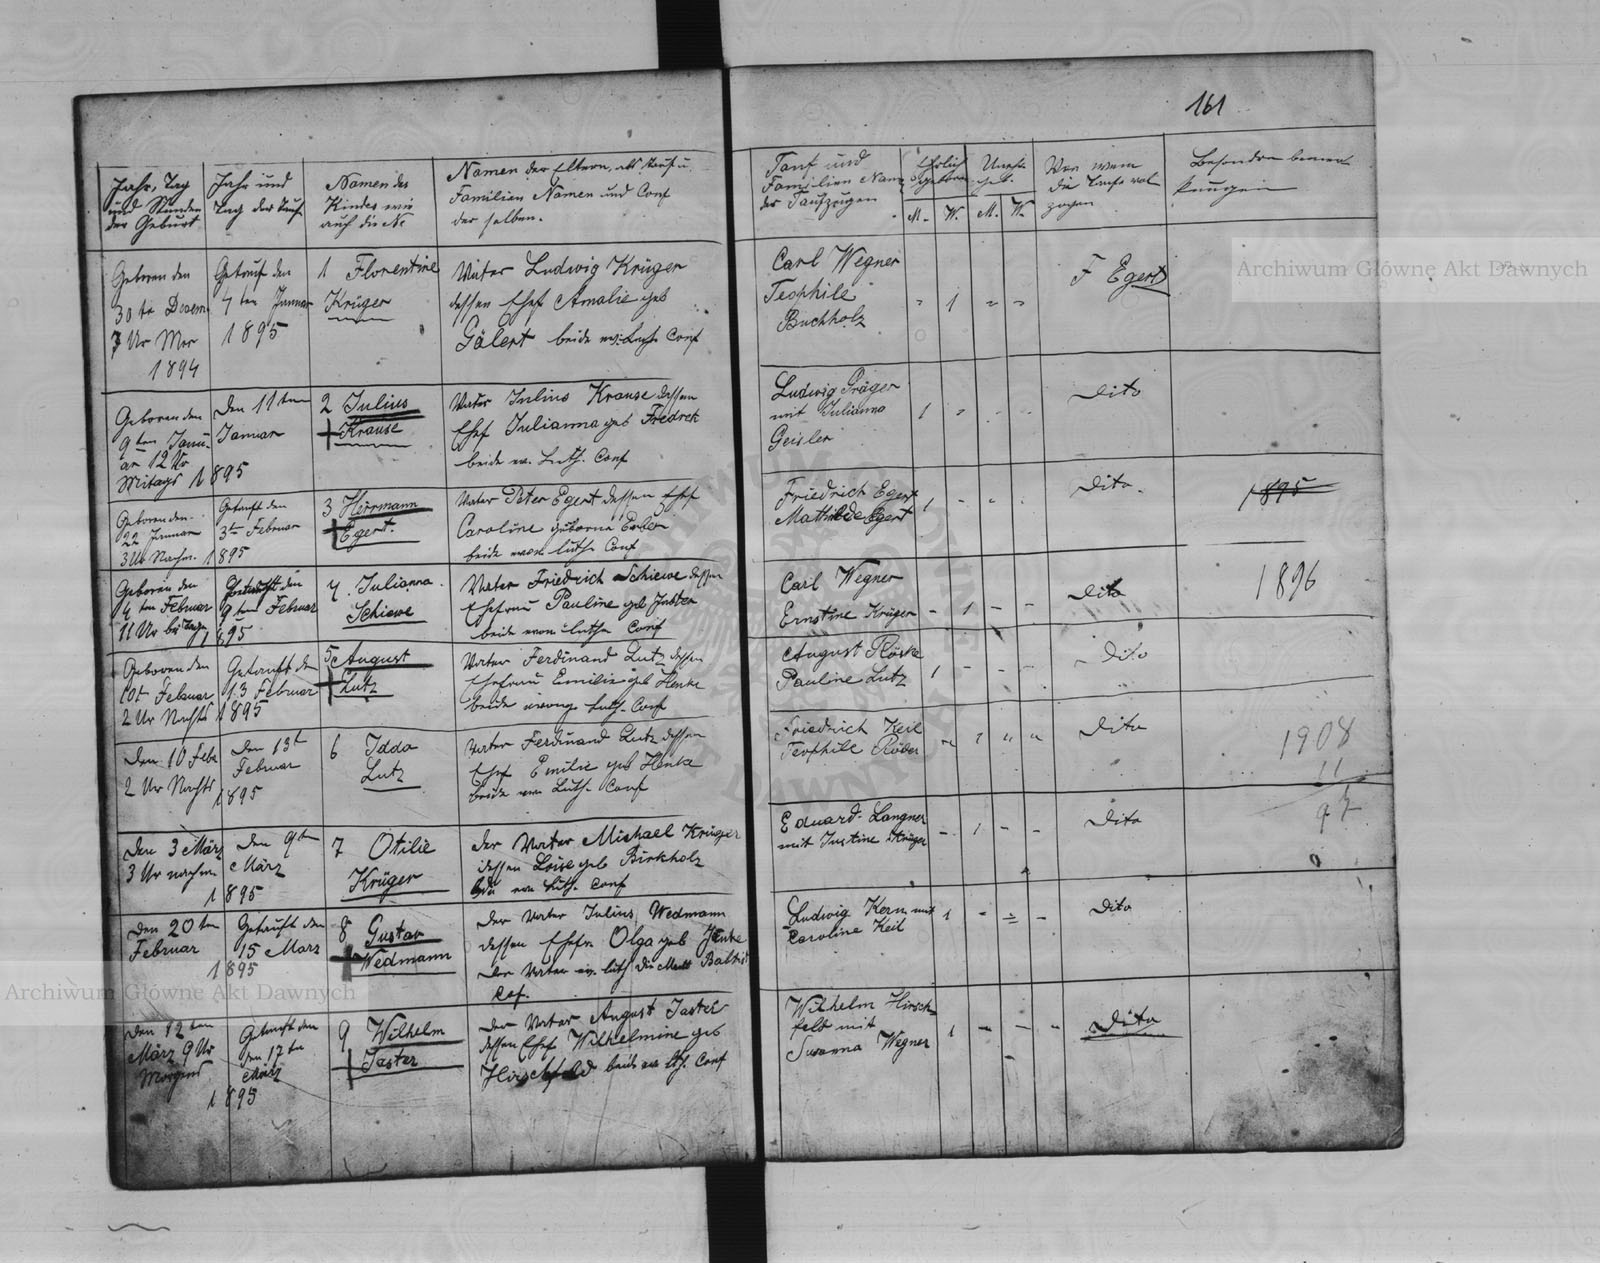 161
Jahr, Tag
und Stunden
der Geburt
Jahr und
Tag der Tauf
Namen des
Kindes wie
auch die No
Namen der Eltern, als Tauf u.
Familien Namen und Conf
der selben.
Tauf und
Familien Nam
der Taufzeugen
Ehelich
geboren
Unehe
geb.
M. W. M. W.
Von wem
die Taufe vol
zogen
Besondre bemer
kungen
Geboren den
30 te Decem
7 Ur Mor
1894
Getauf den
7 ten Januar
1895
1 Florentine
Krüger
Vater Ludwig Krüger
dessen Ehef Amalie geb
Gälert beide ev. Luth. Conf
Carl Wegner
Teophile
Buchholz
1
F Egert
Geboren den
9 ten Janu-
ar 12 Ur
Mitags 1895
Den 11 ten
Januar
2 Julius
Krause
Vater Julius Krause dessen
Ehef Julianna geb Fredrek
beide ev. Luth. Conf
Ludwig Präger
mit Julianna
Geisler
1
Dito
Geboren den
22 Januar
3 Ur Nachm. 1895
Getauft den
3 te Februar
3 Herrmann
Egert.
Vater Peter Egert dessen Ehef
Caroline geborne Erber
beide evan luth. Conf
Friedrich Egert
Mathilde Egert
1
Dito.
1895
Geboren den
4 ten Februar
11 Ur bei Tage 1895
den
9 ten Februar
4. Julianna
Schiewe
Vater Friedrich Schiewe dessen
Ehefrau Pauline geb Jaster
beide evan luth. Conf
Carl Wegner
Ernstine Krüger
1
Dito
1896
Geboren den
10 t Februar
2 Ur Nachts 1895
Getauft den
13 Februar
5 August
Lutz
Vater Ferdinand Lutz dessen
Ehefrau Emilie geb Henke
beide evang Luth. Conf
August Röske
Pauline Lutz
1
Dito
Den 10 Febr
2 Ur Nachts 1895
Den 13 t
Februar
6 Idda
Lutz
Vater Ferdinand Lutz dessen
Ehef Emilie geb Henke
beide evan Luth. Conf
Friedrich Keil
Teophile Röder
1
Dito
1908
11
97
Den 3 März
3 Ur nachm.
1895
Den 9 t
März
7 Otilie
Krüger
Der Vater Michael Krüger
dessen Loise geb Birkholz
beide evan Luth. Conf
Eduard Langner
mit Justine Krüger
1
Dito
Den 20 ten
Februar
1895
Getauft den
15 Marz
8 Gustav
Wedmann
Der Vater Julius Wedmann
dessen Ehefr Olga geb Jenke
Der Vater ev. luth Die Mutt Babtist
Cof.
Ludwig Kern mit
Caroline Keil
1
Dito
Den 12 ten
März 9 Ur
Morgens
1895
Getauft den
den 17 te
März
9 Wilhelm
Jaster
Der Vater August Jaster
dessen Ehef Wilhelmine geb
Hirschfeld beide ev lth. Conf
Wilhelm Hirsch-
feld mit
Susanna Wegner
1
Dito
Archiwum Główne Akt Dawnych
Archiwum Główne Akt Dawnych